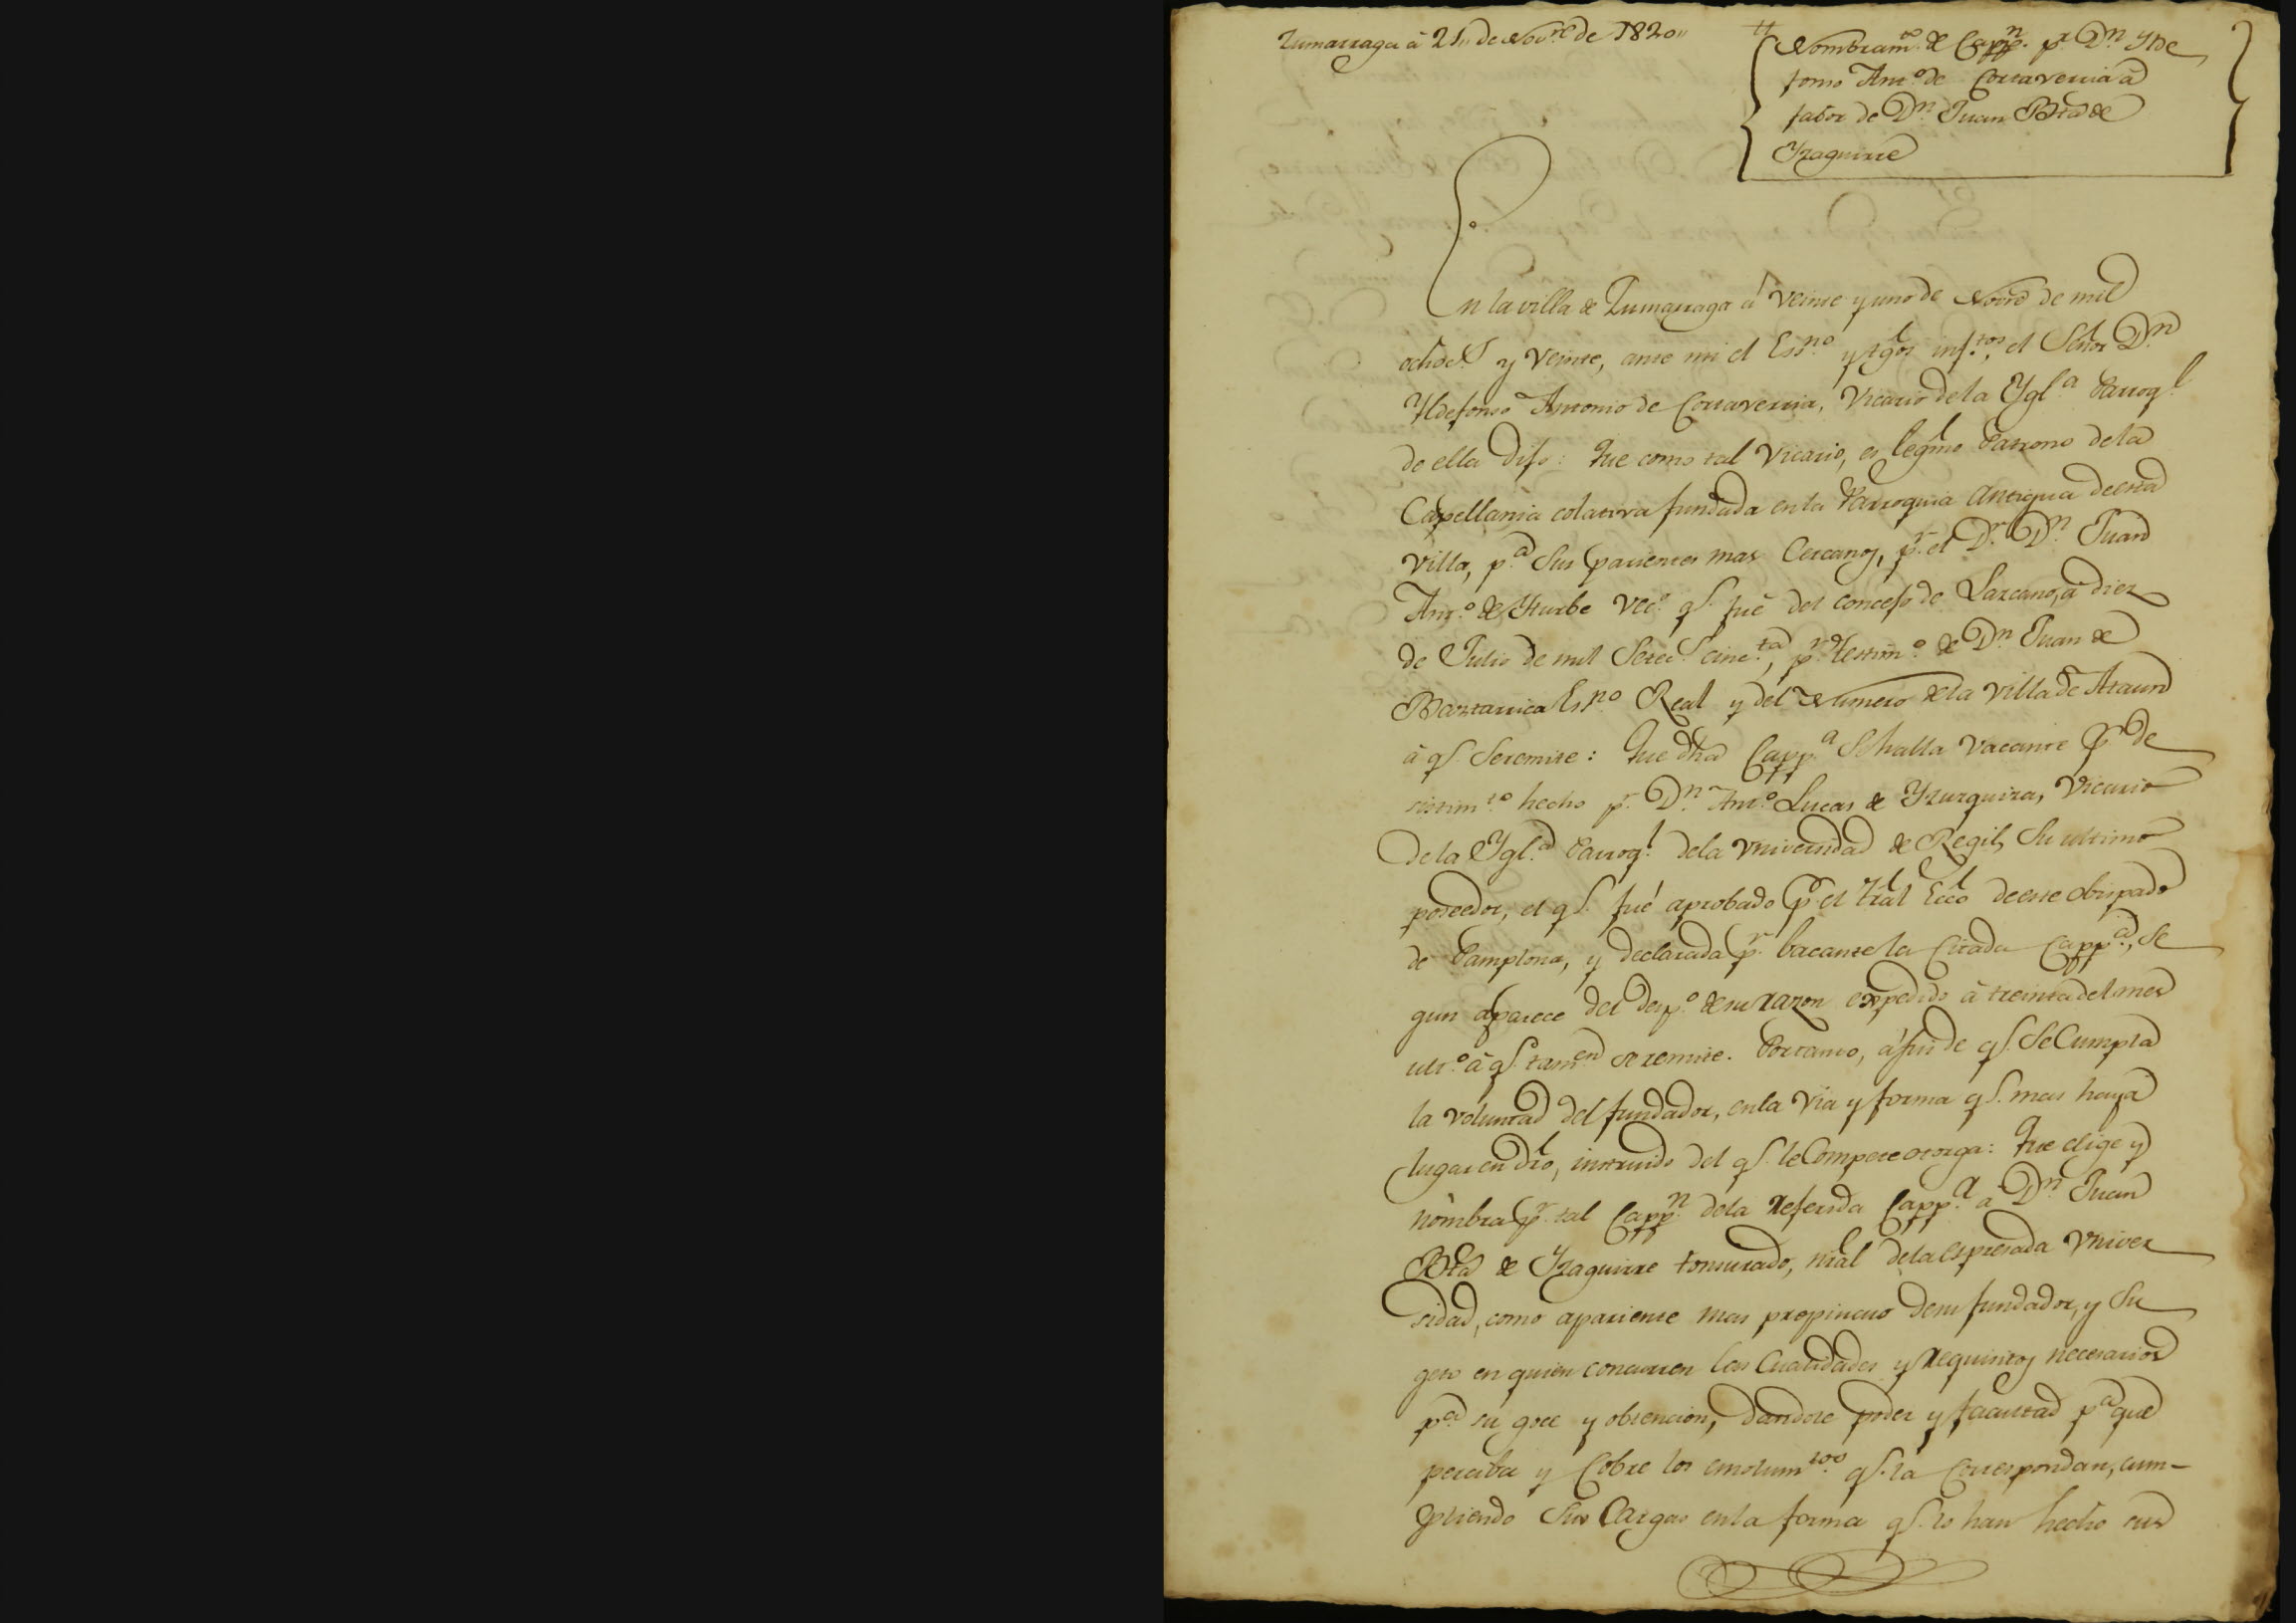 Zumarraga à 21,, de Nov.re de 1820,,
Nombram.to de Capp.n p.r D.n Ylde
fonso Ant.o de Cortaverria à
fabor de D.n Juan Bta de
Yzaguirre
En la villa de Zumarraga à veinte y uno de Novre de mil
ochoc.s y veinte, ante mi el Ess.no y tgos inf.tos, el Señor D.n
Yldefonso Antonio de Cortaverria, Vicario de la Ygl.a Parroq.l
de ella Dijo: Que como tal Vicario, es legmo Patrono de la
Capellania colativa fundada en la Parroquia Antigua de esta
Villa, p.a Sus parientes mas Cercanos, p.r el D.r D.n Juan
Ant.o de Yturbe vec.o q.e fuè del concejo de Lazcano, à diez
de Julio de mil Setec.s cinc.ta, p.r testim.o de D.n Juan de
Baztarrica Ess.no Real y del Numero de la Villa de Ataun
à q.e Se remite: Que dha Capp.a Se halla Vacante p.r de
sistim.to hecho p.r D.n Ant.o Lucas de Yzurquiza, Vicario
de la Ygl.a Parroq.l de la Universidad de Regil, Su ultimo
poseedor, el q.e fué aprobado p.r el Tral Ecco de este Obispado
de Pamplona, y declarada p.r bacante la Citada Capp.a, Se
gun aparece del desp.o de su razon expedido à treinta del mes
ult.o à q.e tamn se remite. Por tanto, à fin de q.e Se Cumpla
la voluntad del fundador, en la Via y forma q.e mas haya
lugar en dro, instruido del q.e le Compete otorga: Que elige y
nombra p.r tal Capp.n de la referida Capp.a a D.n Juan
Bta de Yzaguirre tonsurado, nral de la espresada Univer
sidad, como apariente mas propincuo de su fundador, y Su
geto en quien concurren las Cualidades y requisitos necesarios
p.a su goce y obtencion, dandole poder y facultad p.a que
perciba y Cobre los emolum.tos q.e la Correspondan, cum-
pliendo Sus Cargas en la forma q.e lo han hecho sus